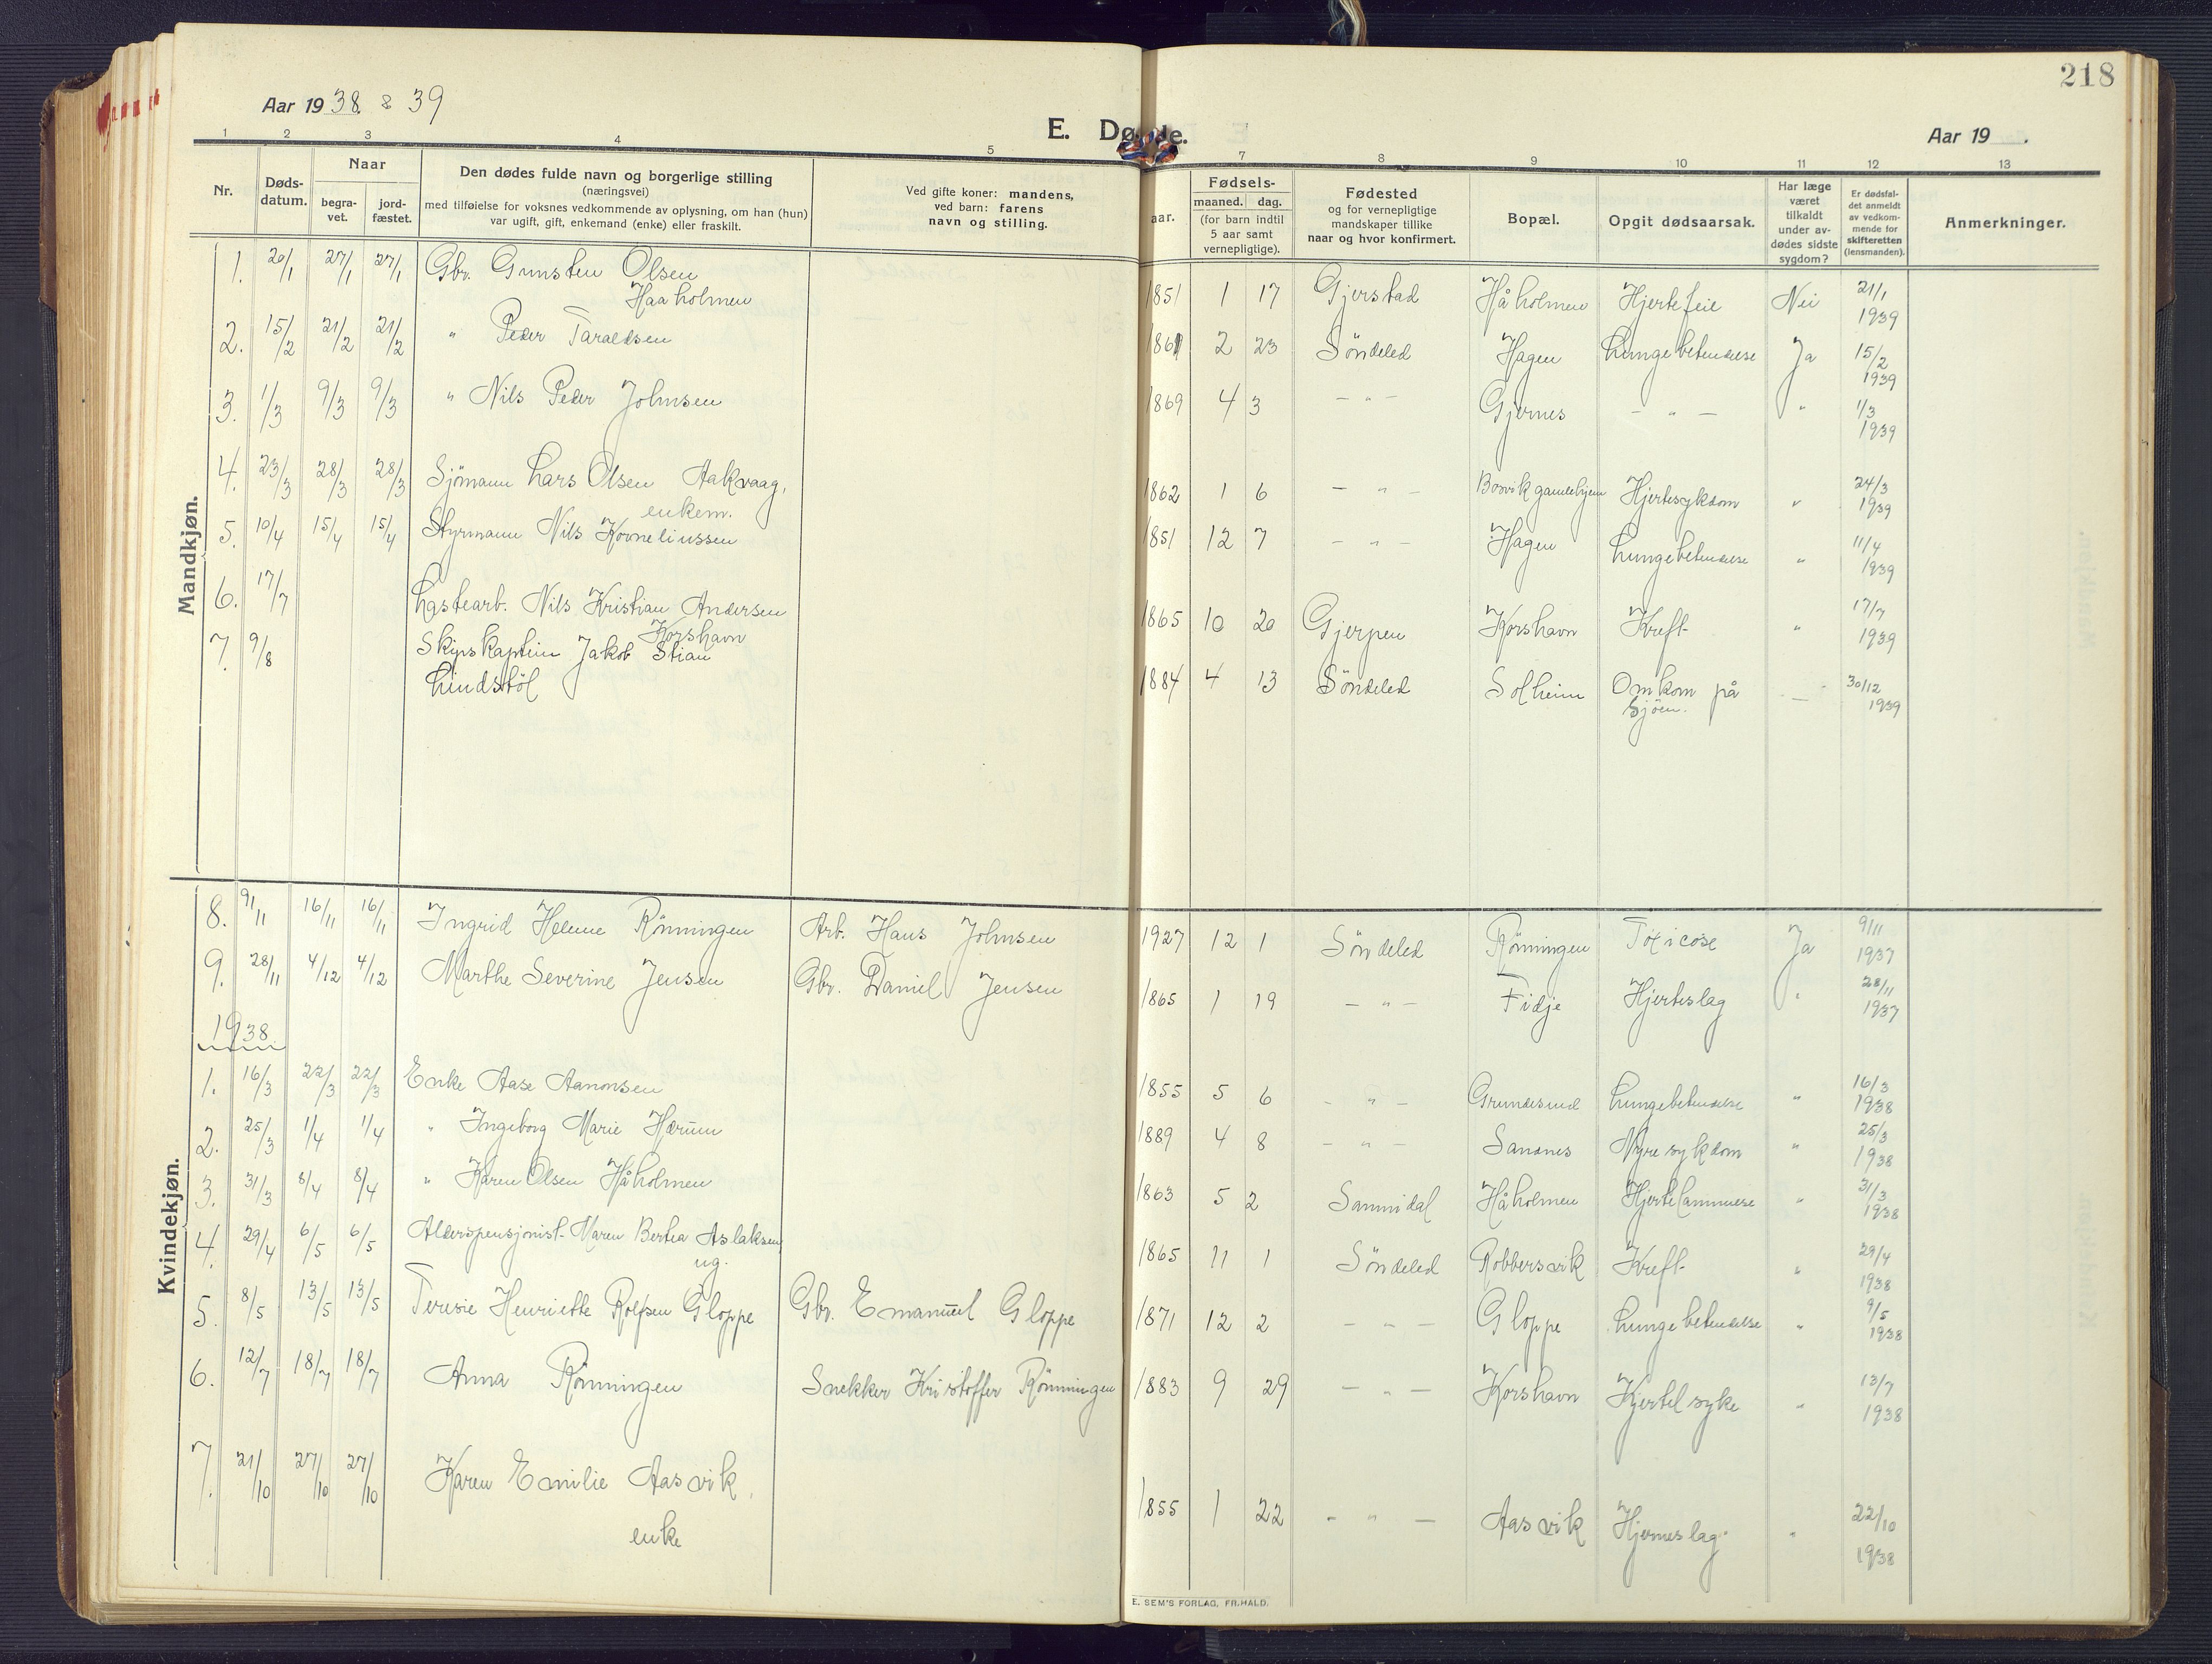 218
Aar 1938. & 39
E. Dø de.
Aar 19 .
1 2 3 4 5 7 8 9 10 11 12 13
Nr.
Døds-
datum.
Naar
begra-
vet.
jord-
fæstet.
Den dødes fulde navn og borgerlige stilling
(næringsvei)
med tilføielse for voksnes vedkommende av oplysning, om han (hun)
var ugift, gift, enkemand (enke) eller fraskilt.
Ved gifte koner: mandens,
ved barn: farens
navn og stilling.
aar.
Fødsels-
maaned. dag.
(for barn indtil
5 aar samt
vernepligtige).
Fødested
og for vernepligtige
mandskaper tillike
naar og hvor konfirmert.
Bopæl.
Opgit dødsaarsak.
Har læge
været
tilkaldt
under av-
dødes sidste
sygdom?
Er dødsfal-
det anmeldt
av vedkom-
mende for
skifteretten
(lensmanden).
Anmerkninger.
Mandkjøn.
1. 20/1 27/1 27/1 Gbr. Gunsten Olsen
Haaholmen
1851 1 17 Gjerstad Håholmen Hjertefeil Nei 21/1 1939
2. 15/2 21/2 21/2 " Peder Taraldsen 1861 2 23 Söndeled Hagen Lungebetendelse Ja 15/2 1939
3. 1/3 9/3 9/3 " Nils Peder Johnsen 1869 4 3 - " - Gjernes - " - " 1/3 1939
4. 23/3 28/3 28/3 Sjömann Lars Olsen Aakvaag,
enkem.
1862 1 6 - " - Bosvik gamlehjem Hjertesykdom " 24/3 1939
5. 10/4 15/4 15/4 Styrmann Nils Korneliussen 1851 12 7 - " - Hagen Lungebetendelse " 11/4 1939
6. 17/7 Lastearb. Nils Kristian Andersen
Korshavn
1865 10 20 Gjerpen Korshavn Kreft " 17/7 1939
7. 9/8 Skipskaptein Jakob Stian
Lindstöl
1884 4 13 Söndeled Solheim Omkom på
Sjöen. — 30/12 1939
Kvindekjøn.
8. 9/11 16/11 16/11 Ingrid Helene Rönningen Arb. Hans Johnsen 1927 12 1 Söndeled Rönningen Toxicose Ja 9/11 1937
9. 28/11 4/12 4/12 Marthe Severine Jensen Gbr. Daniel Jensen 1865 1 19 - " - Fidje Hjerteslag " 28/11 1937
1938
1. 16/3 22/3 22/3 Enke Aase Aanonsen 1855 5 6 - " - Grundesund Lungebetendelse " 16/3 1938
2. 25/3 1/4 1/4 " Ingeborg Marie Hærum 1889 4 8 - " - Sandnes Nyresykdom " 25/3 1938
3. 31/3 8/4 8/4 " Karen Olsen Håholmen 1863 5 2 Sannidal Håholmen Hjertelammelse " 31/3 1938
4. 29/4 6/5 6/5 Alderspensjonist Maren Bertea Aslaksen
ug.
1865 11 1 Söndeled Robbersvik Kreft " 29/4 1938
5. 8/5 13/5 13/5 Teresie Henriette Rolfsen Gloppe Gbr. Emanuel Gloppe 1871 12 2 - " - Gloppe Lungebetendelse " 9/5 1938
6. 12/7 18/7 18/7 Anna Rönningen Snekker Kristoffer Rönningen 1883 9 29 - " - Korshavn Kjertelsyke " 13/7 1938
7. 21/10 27/10 27/10 Karen Emilie Aasvik
enke
1855 1 22 - " - Aasvik Hjerneslag " 22/10 1938
E. SEM'S FORLAG, FR.HALD.